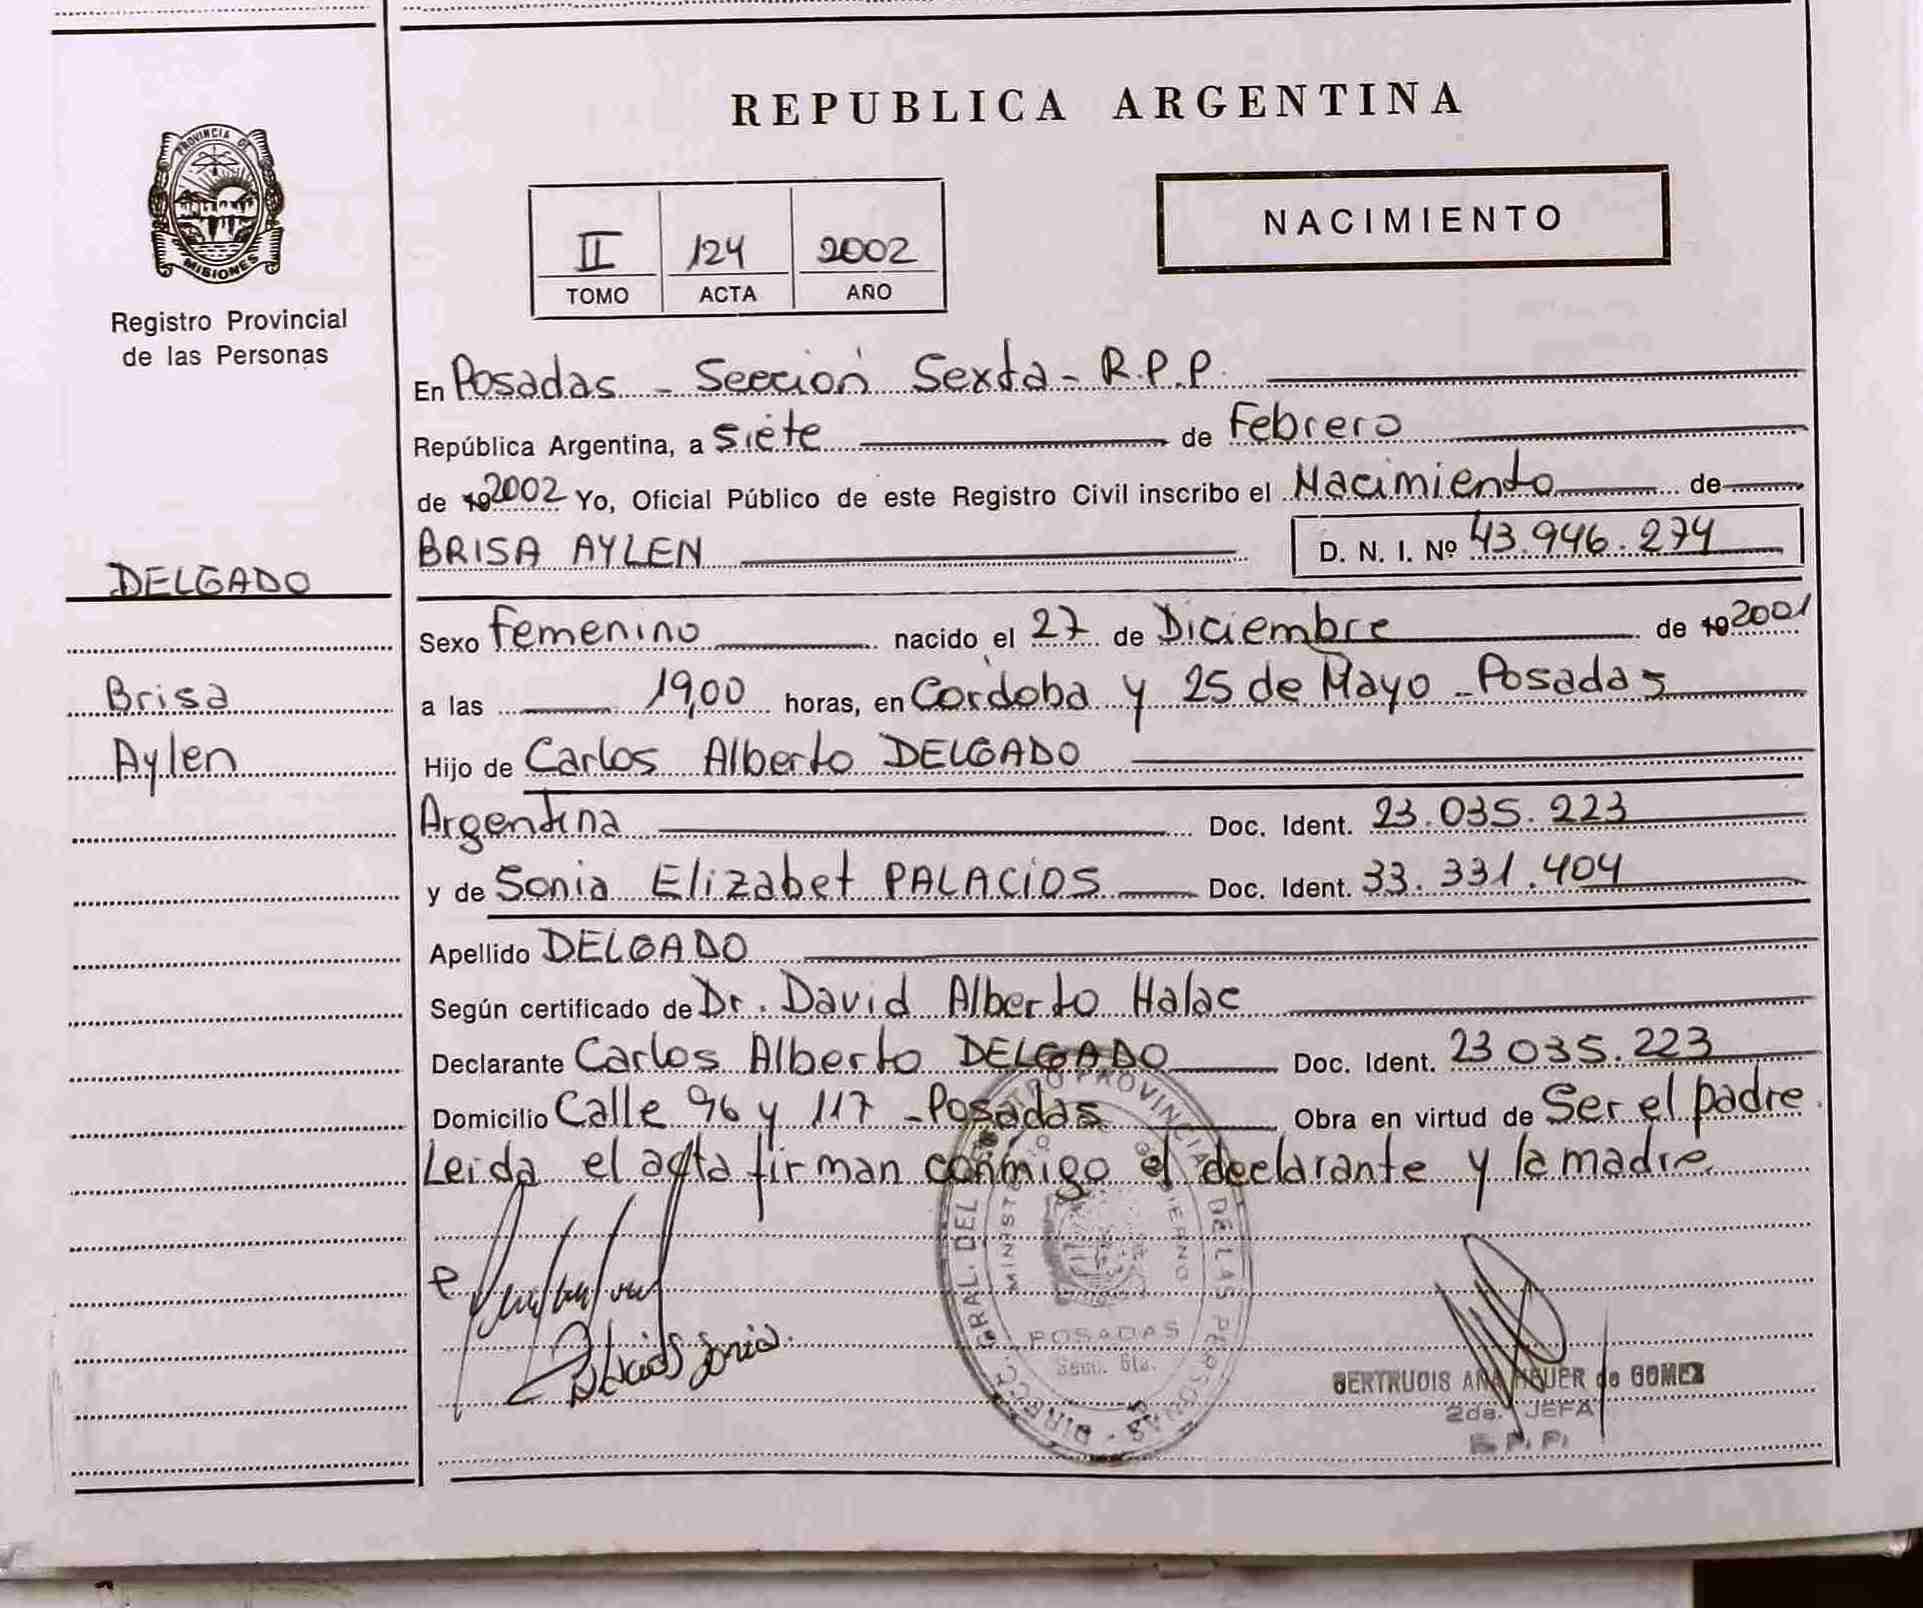 REPUBLICA ARGENTINA
PROVINCIA DE
MISIONES
Registro Provincial
de las Personas
NACIMIENTO
II 124 2002
TOMO ACTA AÑO
En Posadas - Sección Sexta - R.P.P.
República Argentina, a siete de Febrero
de 192002 Yo, Oficial Público de este Registro Civil inscribo el Nacimiento de
BRISA AYLEN D. N. I. Nº 43.946.274
DELGADO
Brisa
Aylen
Sexo femenino nacido el 27 de Diciembre de 192001
a las 19,00 horas, en Córdoba y 25 de Mayo - Posadas
Hijo de Carlos Alberto DELGADO
Argentina Doc. Ident. 23.035.223
y de Sonia Elizabet PALACIOS Doc. Ident. 33.331.404
Apellido DELGADO
Según certificado de Dr. David Alberto Halac
Declarante Carlos Alberto DELGADO Doc. Ident. 23 035.223
Domicilio Calle 96 y 117 - Posadas Obra en virtud de Ser el padre.
Leida el acta firman conmigo el declarante y la madre
DIRECC. GRAL. DEL REGISTRO PROVINCIAL DE LAS PERSONAS
MINISTERIO GOBIERNO
POSADAS
Secc. 6ta.
Palacios Sonia.
GERTRUDIS ANA de GOMEZ
2da. JEFA
R. P. P.